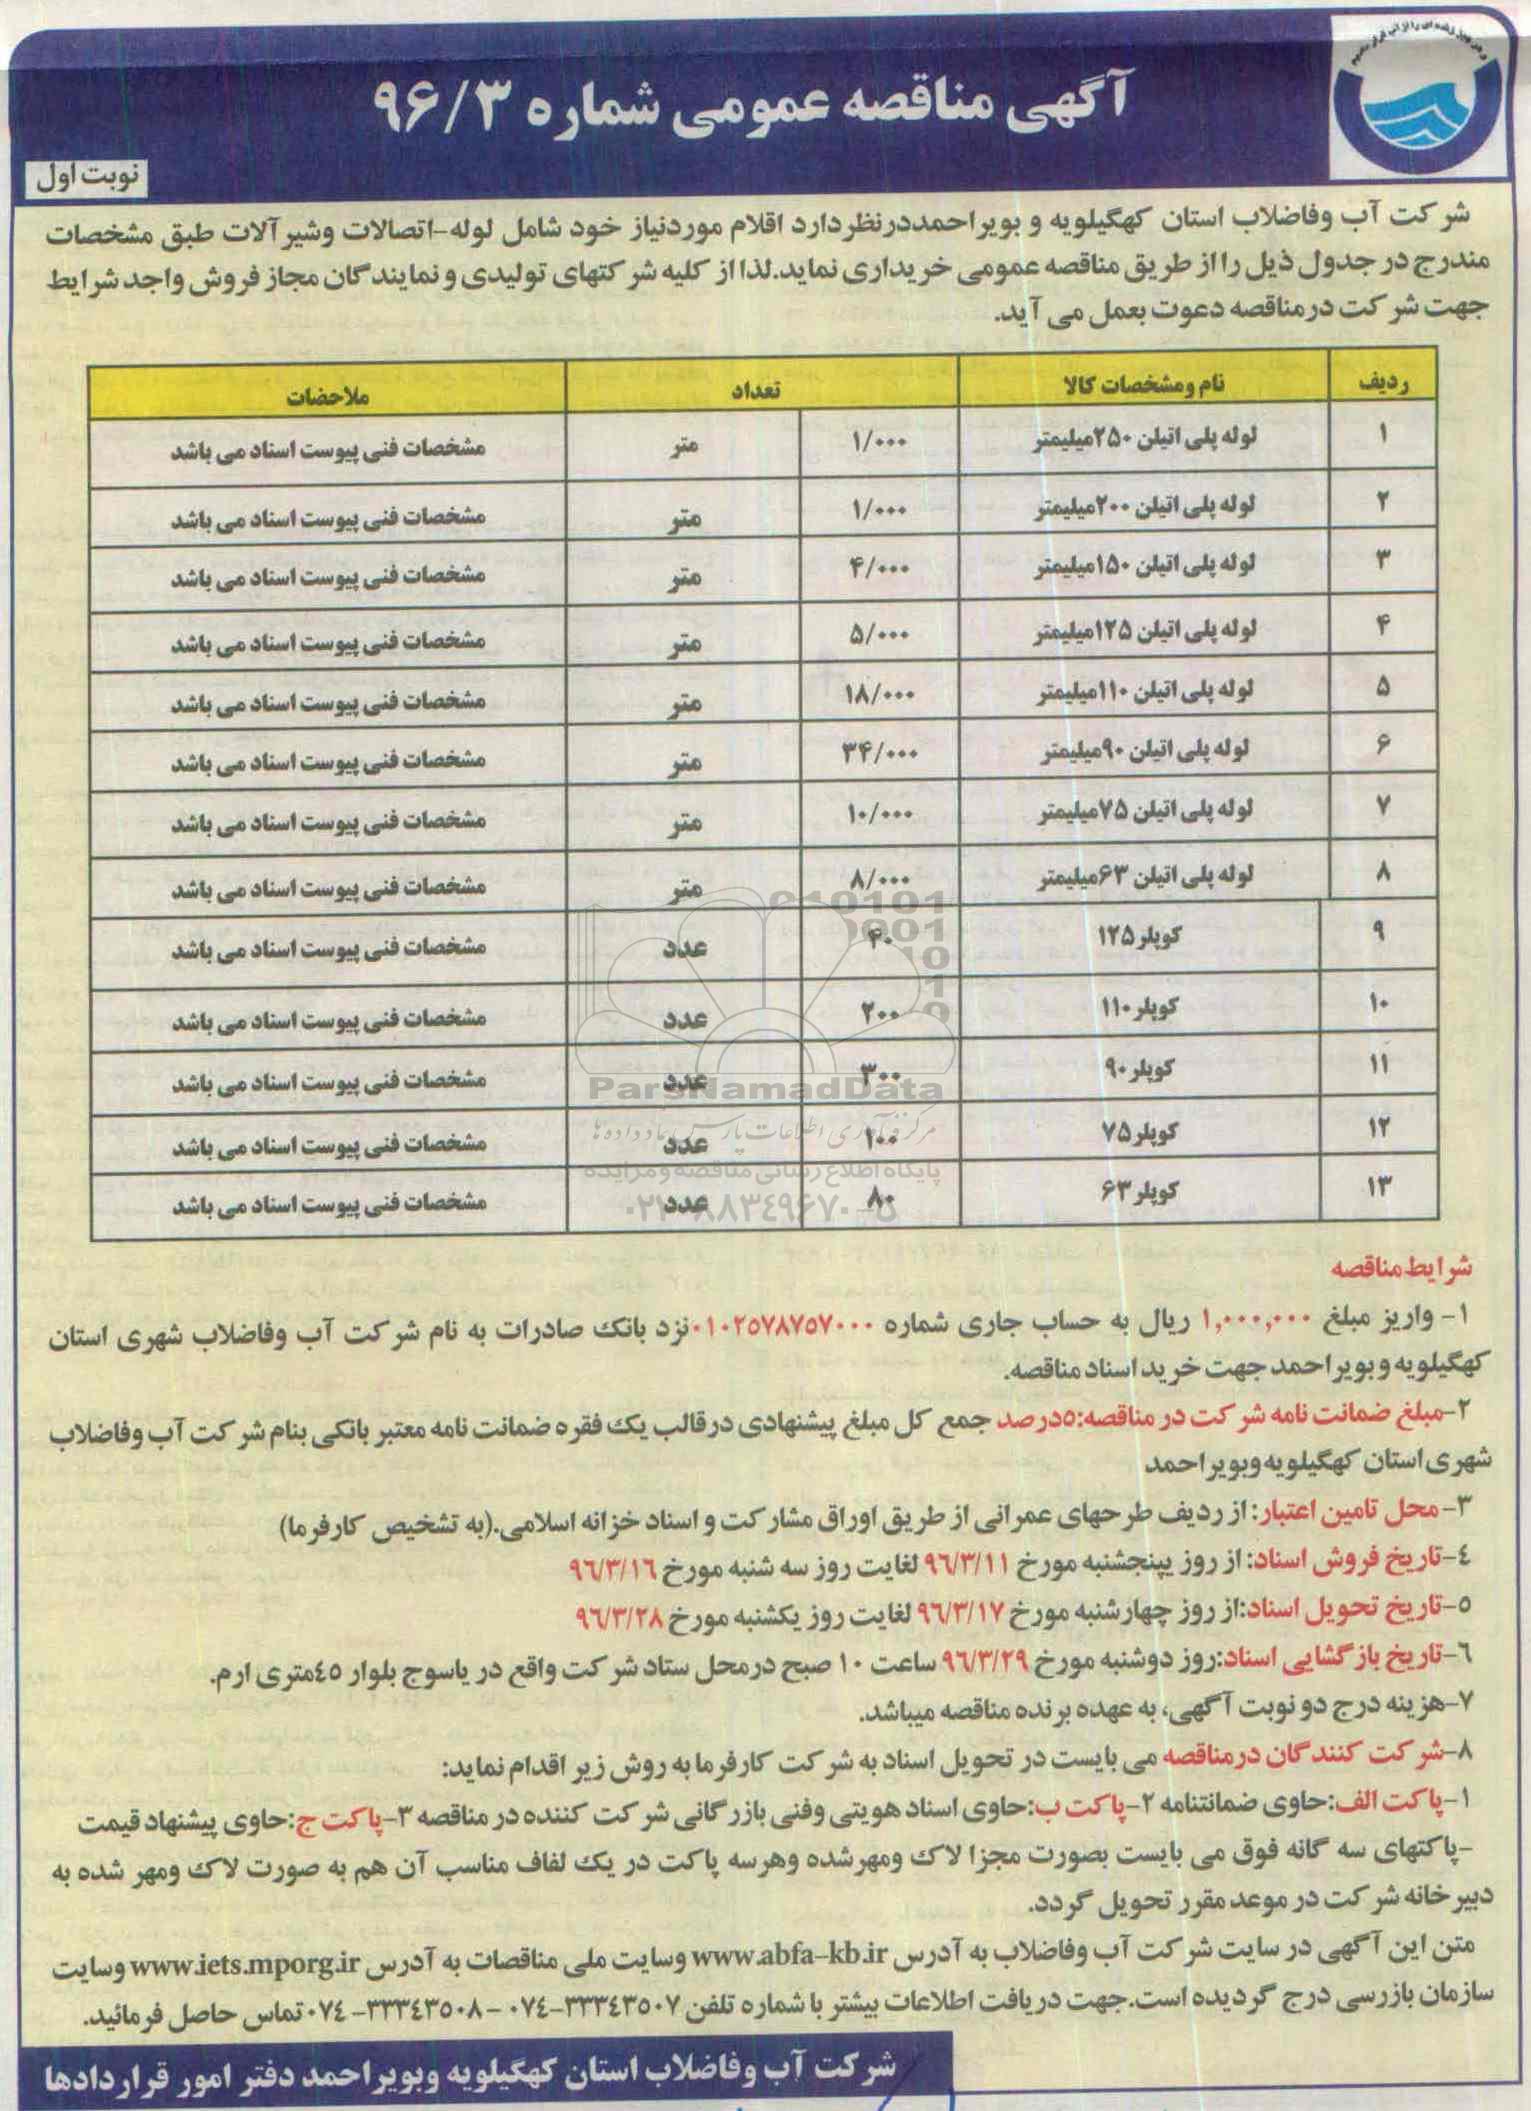 و من الماء کل شی حی
آگهی مناقصه عمومی شماره ۹۶/۳
نوبت اول
شرکت آب وفاضلاب استان کهگیلویه و بویراحمددرنظردارد اقلام موردنیاز خود شامل لوله-اتصالات وشیرآلات طبق مشخصات
مندرج در جدول ذیل را از طریق مناقصه عمومی خریداری نماید.لذا از کلیه شرکتهای تولیدی و نمایندگان مجاز فروش واجد شرایط
جهت شرکت درمناقصه دعوت بعمل می آید.
ردیف نام ومشخصات کالا تعداد ملاحضات
۱ لوله پلی اتیلن ۲۵۰میلیمتر ۱/۰۰۰ متر مشخصات فنی پیوست اسناد می باشد
۲ لوله پلی اتیلن ۲۰۰میلیمتر ۱/۰۰۰ متر مشخصات فنی پیوست اسناد می باشد
۳ لوله پلی اتیلن ۱۵۰میلیمتر ۴/۰۰۰ متر مشخصات فنی پیوست اسناد می باشد
۴ لوله پلی اتیلن ۱۲۵میلیمتر ۵/۰۰۰ متر مشخصات فنی پیوست اسناد می باشد
۵ لوله پلی اتیلن ۱۱۰میلیمتر ۱۸/۰۰۰ متر مشخصات فنی پیوست اسناد می باشد
۶ لوله پلی اتیلن ۹۰میلیمتر ۳۴/۰۰۰ متر مشخصات فنی پیوست اسناد می باشد
۷ لوله پلی اتیلن ۷۵میلیمتر ۱۰/۰۰۰ متر مشخصات فنی پیوست اسناد می باشد
۸ لوله پلی اتیلن ۶۳میلیمتر ۸/۰۰۰ متر مشخصات فنی پیوست اسناد می باشد
۹ کوپلر۱۲۵ ۴۰ عدد مشخصات فنی پیوست اسناد می باشد
۱۰ کوپلر۱۱۰ ۲۰۰ عدد مشخصات فنی پیوست اسناد می باشد
۱۱ کوپلر۹۰ ۳۰۰ عدد مشخصات فنی پیوست اسناد می باشد
۱۲ کوپلر۷۵ ۱۰۰ عدد مشخصات فنی پیوست اسناد می باشد
۱۳ کوپلر۶۳ ۸۰ عدد مشخصات فنی پیوست اسناد می باشد
ParsNamadData
مرکز فرآوری اطلاعات پارس نماد داده ها
پایگاه اطلاع رسانی مناقصه و مزایده
۰۲۱-۸۸۳۴۹۶۷۰-۵
شرایط مناقصه
۱- واریز مبلغ ۱,۰۰۰,۰۰۰ ریال به حساب جاری شماره ۰۱۰۲۵۷۸۷۵۷۰۰۰نزد بانک صادرات به نام شرکت آب وفاضلاب شهری استان
کهگیلویه و بویراحمد جهت خرید اسناد مناقصه.
۲-مبلغ ضمانت نامه شرکت در مناقصه:۵درصد جمع کل مبلغ پیشنهادی درقالب یک فقره ضمانت نامه معتبر بانکی بنام شرکت آب وفاضلاب
شهری استان کهگیلویه وبویراحمد
۳-محل تامین اعتبار: از ردیف طرحهای عمرانی از طریق اوراق مشارکت و اسناد خزانه اسلامی.(به تشخیص کارفرما)
۴-تاریخ فروش اسناد: از روز پنجشنبه مورخ ۹۶/۳/۱۱ لغایت روز سه شنبه مورخ ۹۶/۳/۱۶
۵-تاریخ تحویل اسناد:از روز چهارشنبه مورخ ۹۶/۳/۱۷ لغایت روز یکشنبه مورخ ۹۶/۳/۲۸
۶-تاریخ بازگشایی اسناد:روز دوشنبه مورخ ۹۶/۳/۲۹ ساعت ۱۰ صبح درمحل ستاد شرکت واقع در یاسوج بلوار ۴۵متری ارم.
۷-هزینه درج دو نوبت آگهی، به عهده برنده مناقصه میباشد.
۸-شرکت کنندگان درمناقصه می بایست در تحویل اسناد به شرکت کارفرما به روش زیر اقدام نماید:
۱-پاکت الف:حاوی ضمانتنامه ۲-پاکت ب:حاوی اسناد هویتی وفنی بازرگانی شرکت کننده در مناقصه ۳-پاکت ج:حاوی پیشنهاد قیمت
-پاکتهای سه گانه فوق می بایست بصورت مجزا لاک ومهرشده وهرسه پاکت در یک لفاف مناسب آن هم به صورت لاک ومهر شده به
دبیرخانه شرکت در موعد مقرر تحویل گردد.
متن این آگهی در سایت شرکت آب وفاضلاب به آدرس www.abfa-kb.ir وسایت ملی مناقصات به آدرس www.iets.mporg.ir وسایت
سازمان بازرسی درج گردیده است.جهت دریافت اطلاعات بیشتر با شماره تلفن ۳۳۳۴۳۵۰۷-۰۷۴ - ۳۳۳۴۳۵۰۸-۰۷۴ تماس حاصل فرمائید.
شرکت آب وفاضلاب استان کهگیلویه وبویراحمد دفتر امور قراردادها